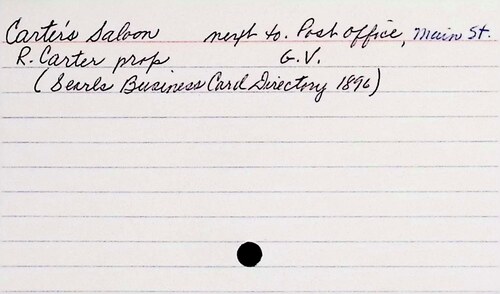 Carter's Saloon next to. Post Office, Main St.
R. Carter prop G.V.
(Searls Business Card Directory 1896)